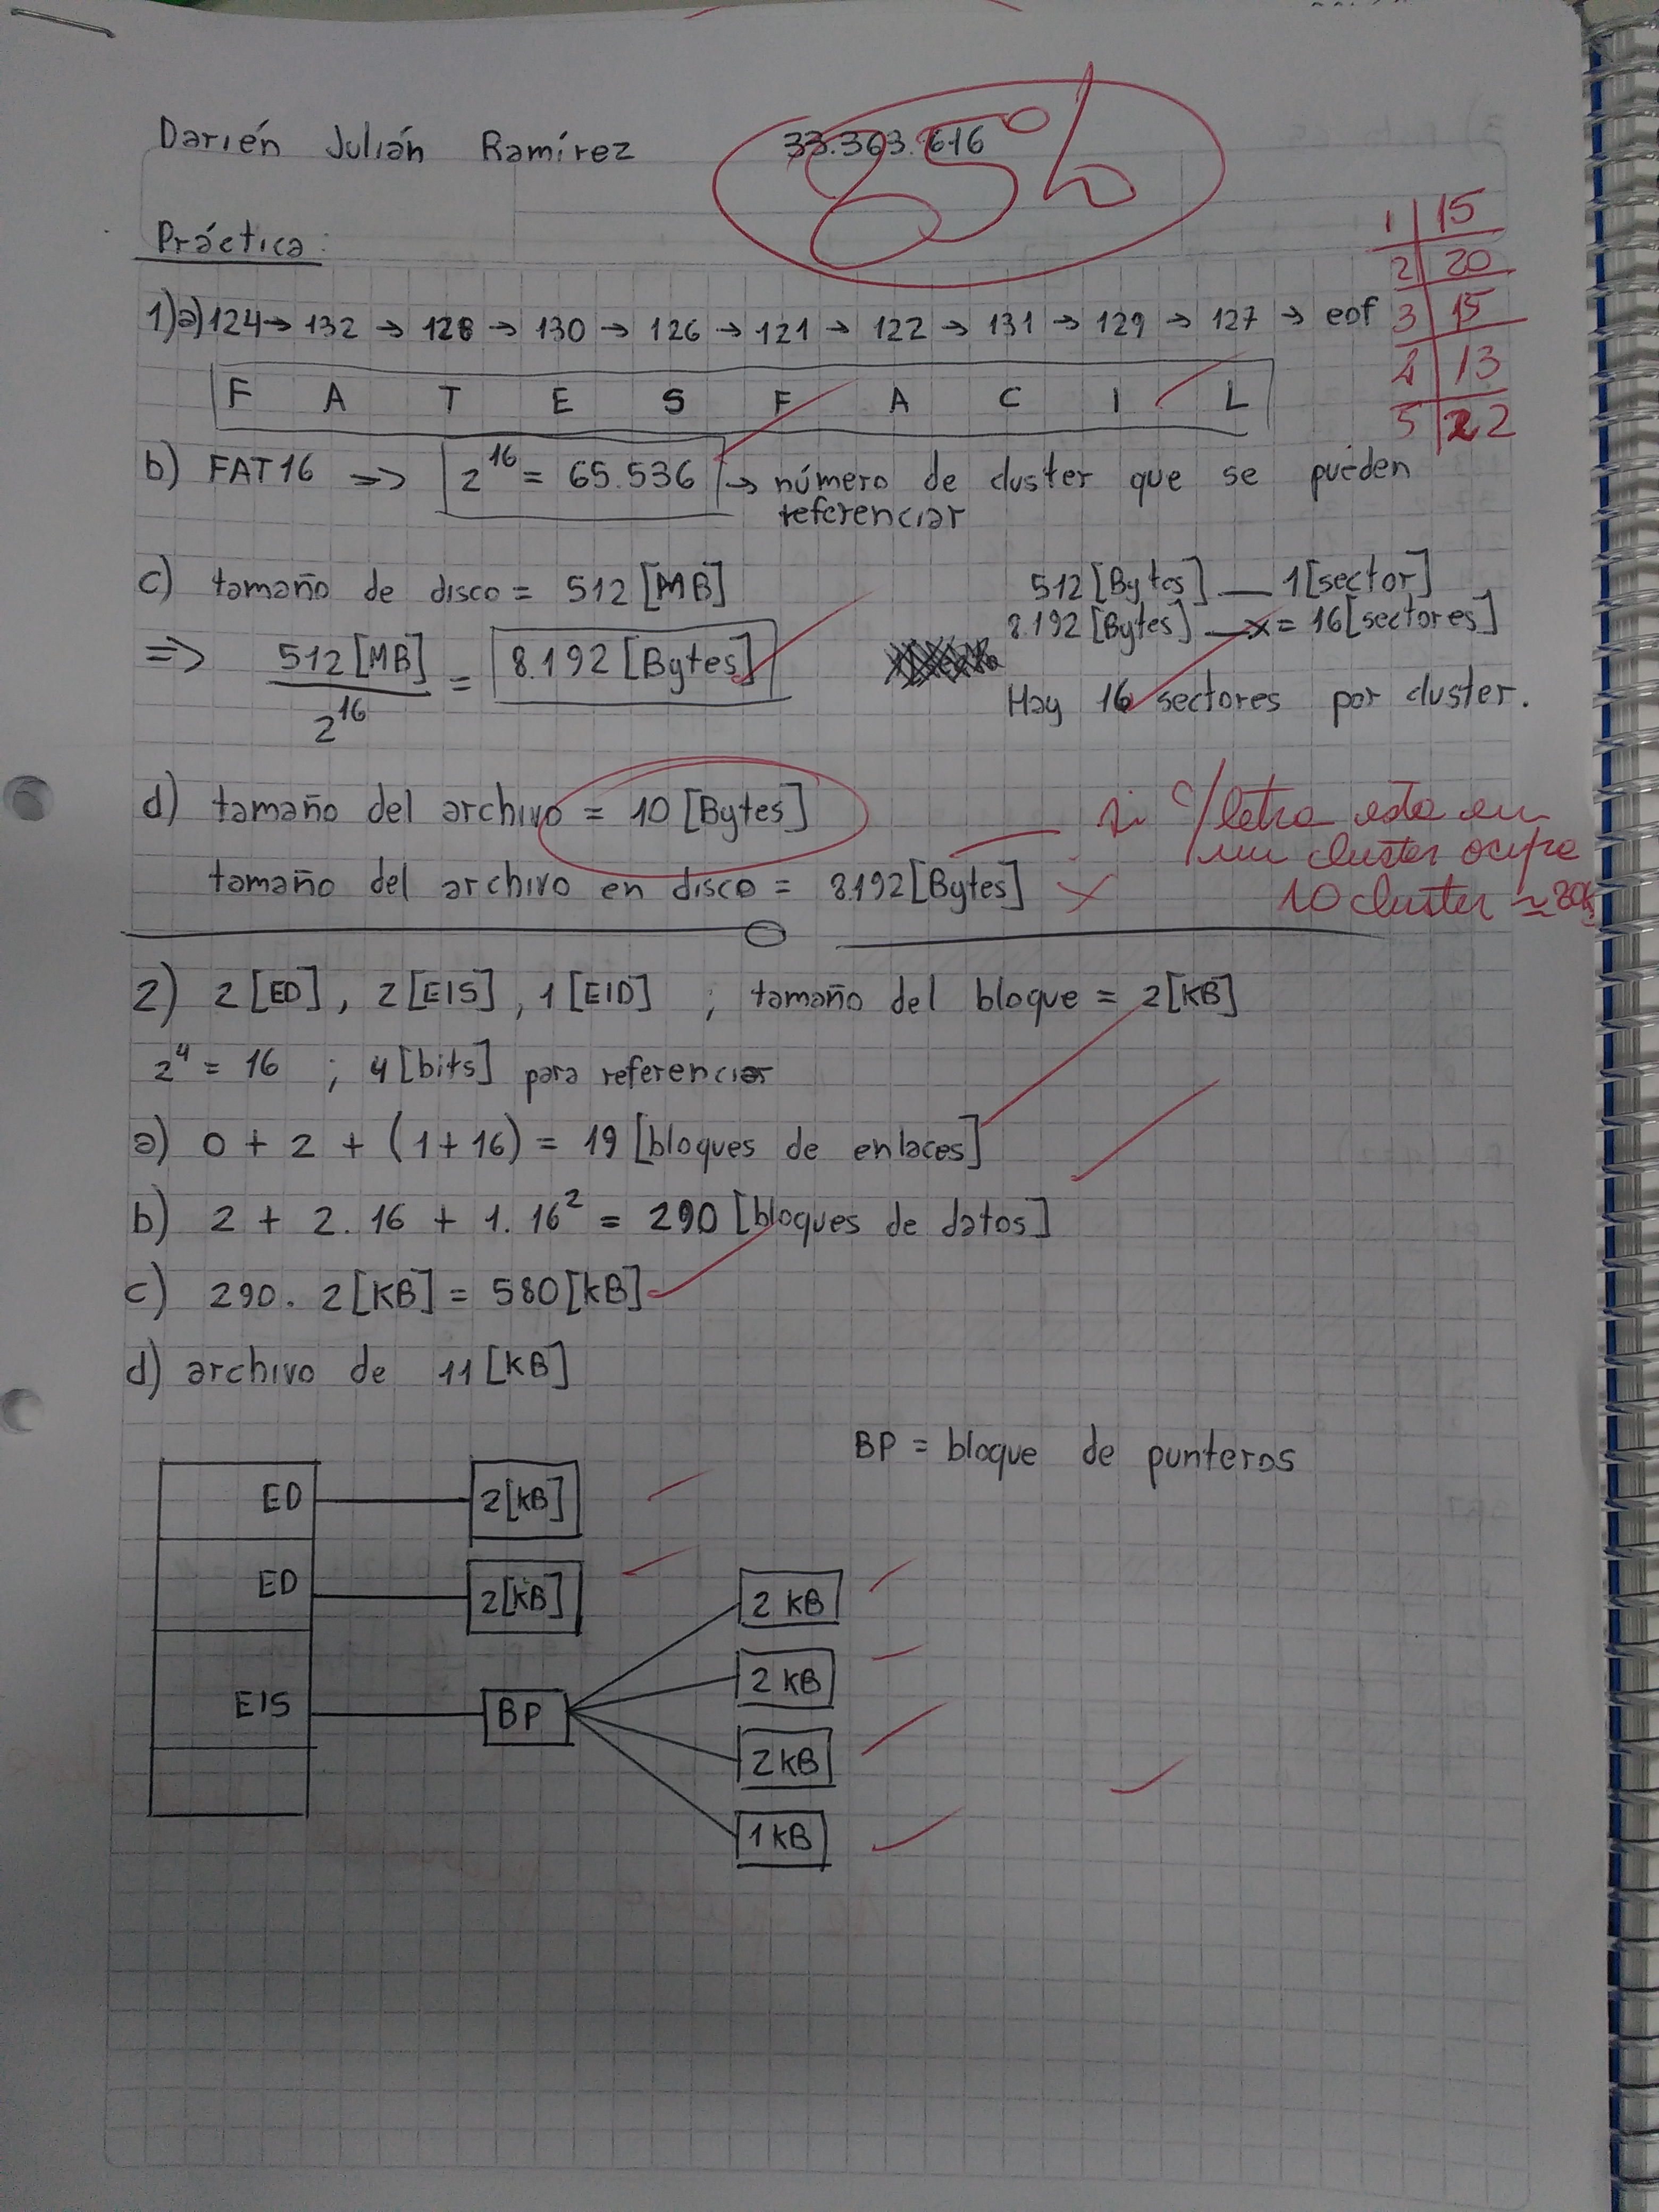 Darién Julián Ramírez 33.363.616
85%
Práctica:
1 | 15
2 | 20
3 | 15
4 | 13
5 | 22
1)a) 124 → 132 → 128 → 130 → 126 → 121 → 122 → 131 → 129 → 127 → eof
F A T E S F A C I L
b) FAT16 => 2^16 = 65.536 → número de cluster que se pueden
referenciar
c) tamaño de disco = 512 [MB]
=> 512 [MB] / 2^16 = 8.192 [Bytes]
512 [Bytes] — 1 [sector]
8.192 [Bytes] — x = 16 [sectores]
Hay 16 sectores por cluster.
d) tamaño del archivo = 10 [Bytes]
tamaño del archivo en disco = 8192 [Bytes] X
si c/letra esta en
un cluster ocupa
10 cluster ≃ 80K
2) 2 [ED], 2 [EIS], 1 [EID] ; tamaño del bloque = 2 [KB]
2^4 = 16 ; 4 [bits] para referenciar
a) 0 + 2 + (1 + 16) = 19 [bloques de enlaces]
b) 2 + 2. 16 + 1. 16^2 = 290 [bloques de datos]
c) 290. 2 [KB] = 580 [KB]
d) archivo de 11 [KB]
BP = bloque de punteros
ED 2 [KB]
ED 2 [KB]
EIS BP
2 KB
2 KB
2 KB
1 KB